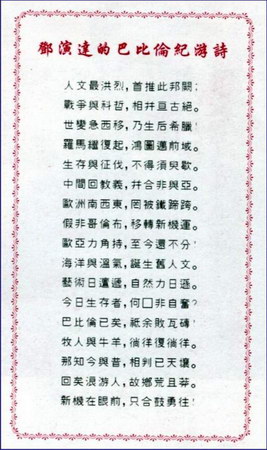 鄧演達的巴比倫紀游詩
人文最洪烈，首推此邦闕；
戰爭與科哲，相幷亘古絕。
世變急西移，乃生后希臘！
羅馬繼復起，鴻圖邁前域。
生存與征伐，不得須臾歇。
中間回教義，幷合非與亞。
歐洲南西東，罔被鐵蹄跨。
假非哥倫布，移轉新機運。
歐亞力角持，至今還不分！
海洋與溫氣，誕生舊人文。
藝術日遷遞，自然力日遜。
今日生存者，何□非自奮？
巴比倫已矣，祇余敗瓦磚！
牧人與牛羊，徜徉復徜徉。
那知今與昔，相判已天讓。
回矣浪游人，故鄉荒且莽。
新機在眼前，只合鼓勇往！